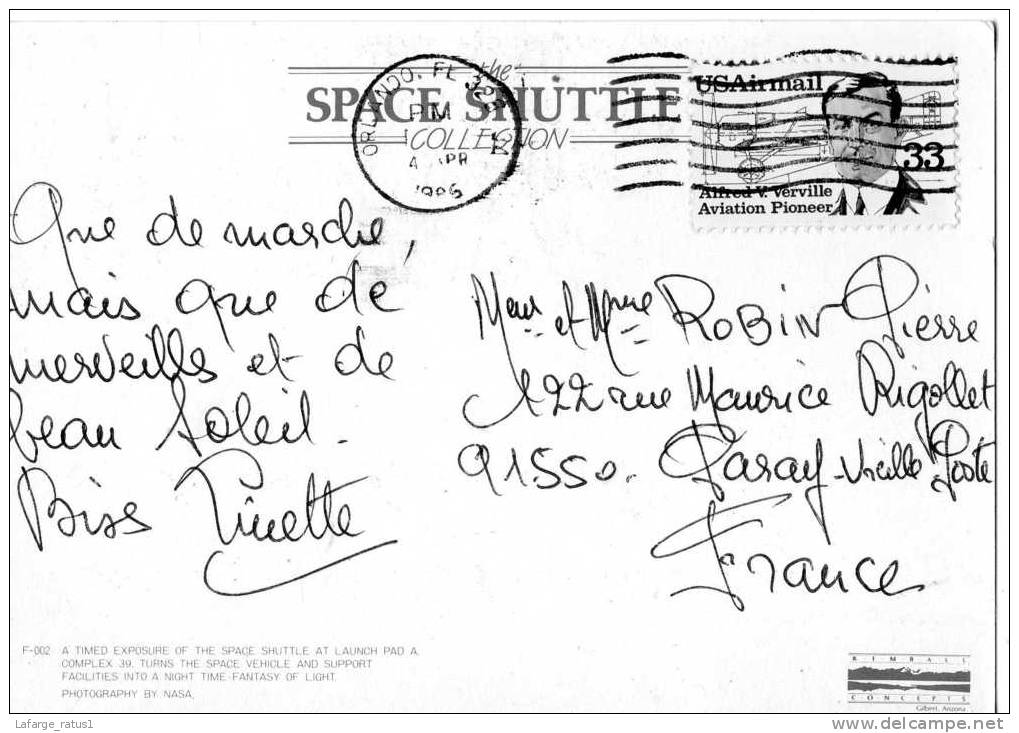 the
SPACE SHUTTLE
COLLECTION
ORLANDO, FL 328
PM
4 APR
1996
USAirmail
33
Alfred V. Verville
Aviation Pioneer
Que de marche,
mais que de
merveilles et de
beau soleil.
Bises Pinette
Meur et Mme ROBIN Pierre
122 rue Maurice Rigollet
91550. Paray-Vieille Poste
France
F-002 A TIMED EXPOSURE OF THE SPACE SHUTTLE AT LAUNCH PAD A,
COMPLEX 39, TURNS THE SPACE VEHICLE AND SUPPORT
FACILITIES INTO A NIGHT TIME-FANTASY OF LIGHT.
PHOTOGRAPHY BY: NASA.
KIMBALL
CONCEPTS
Gilbert, Arizona
Lafarge_ratus1
www.delcampe.net